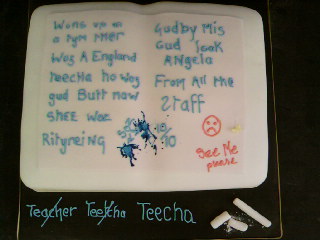 Wons up on
a tym ther
Woz A England
teecha ho woz
gud Butt now
shee woz
Rityreing
Gudby Mis
Gud look
Angela
From All the
Staff
10
See Me
please
Teacher Teetcha Teecha